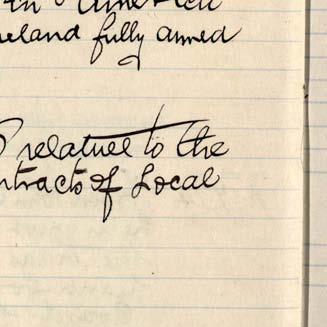 in America
reland fully armed
relative to the
ntracts of Local